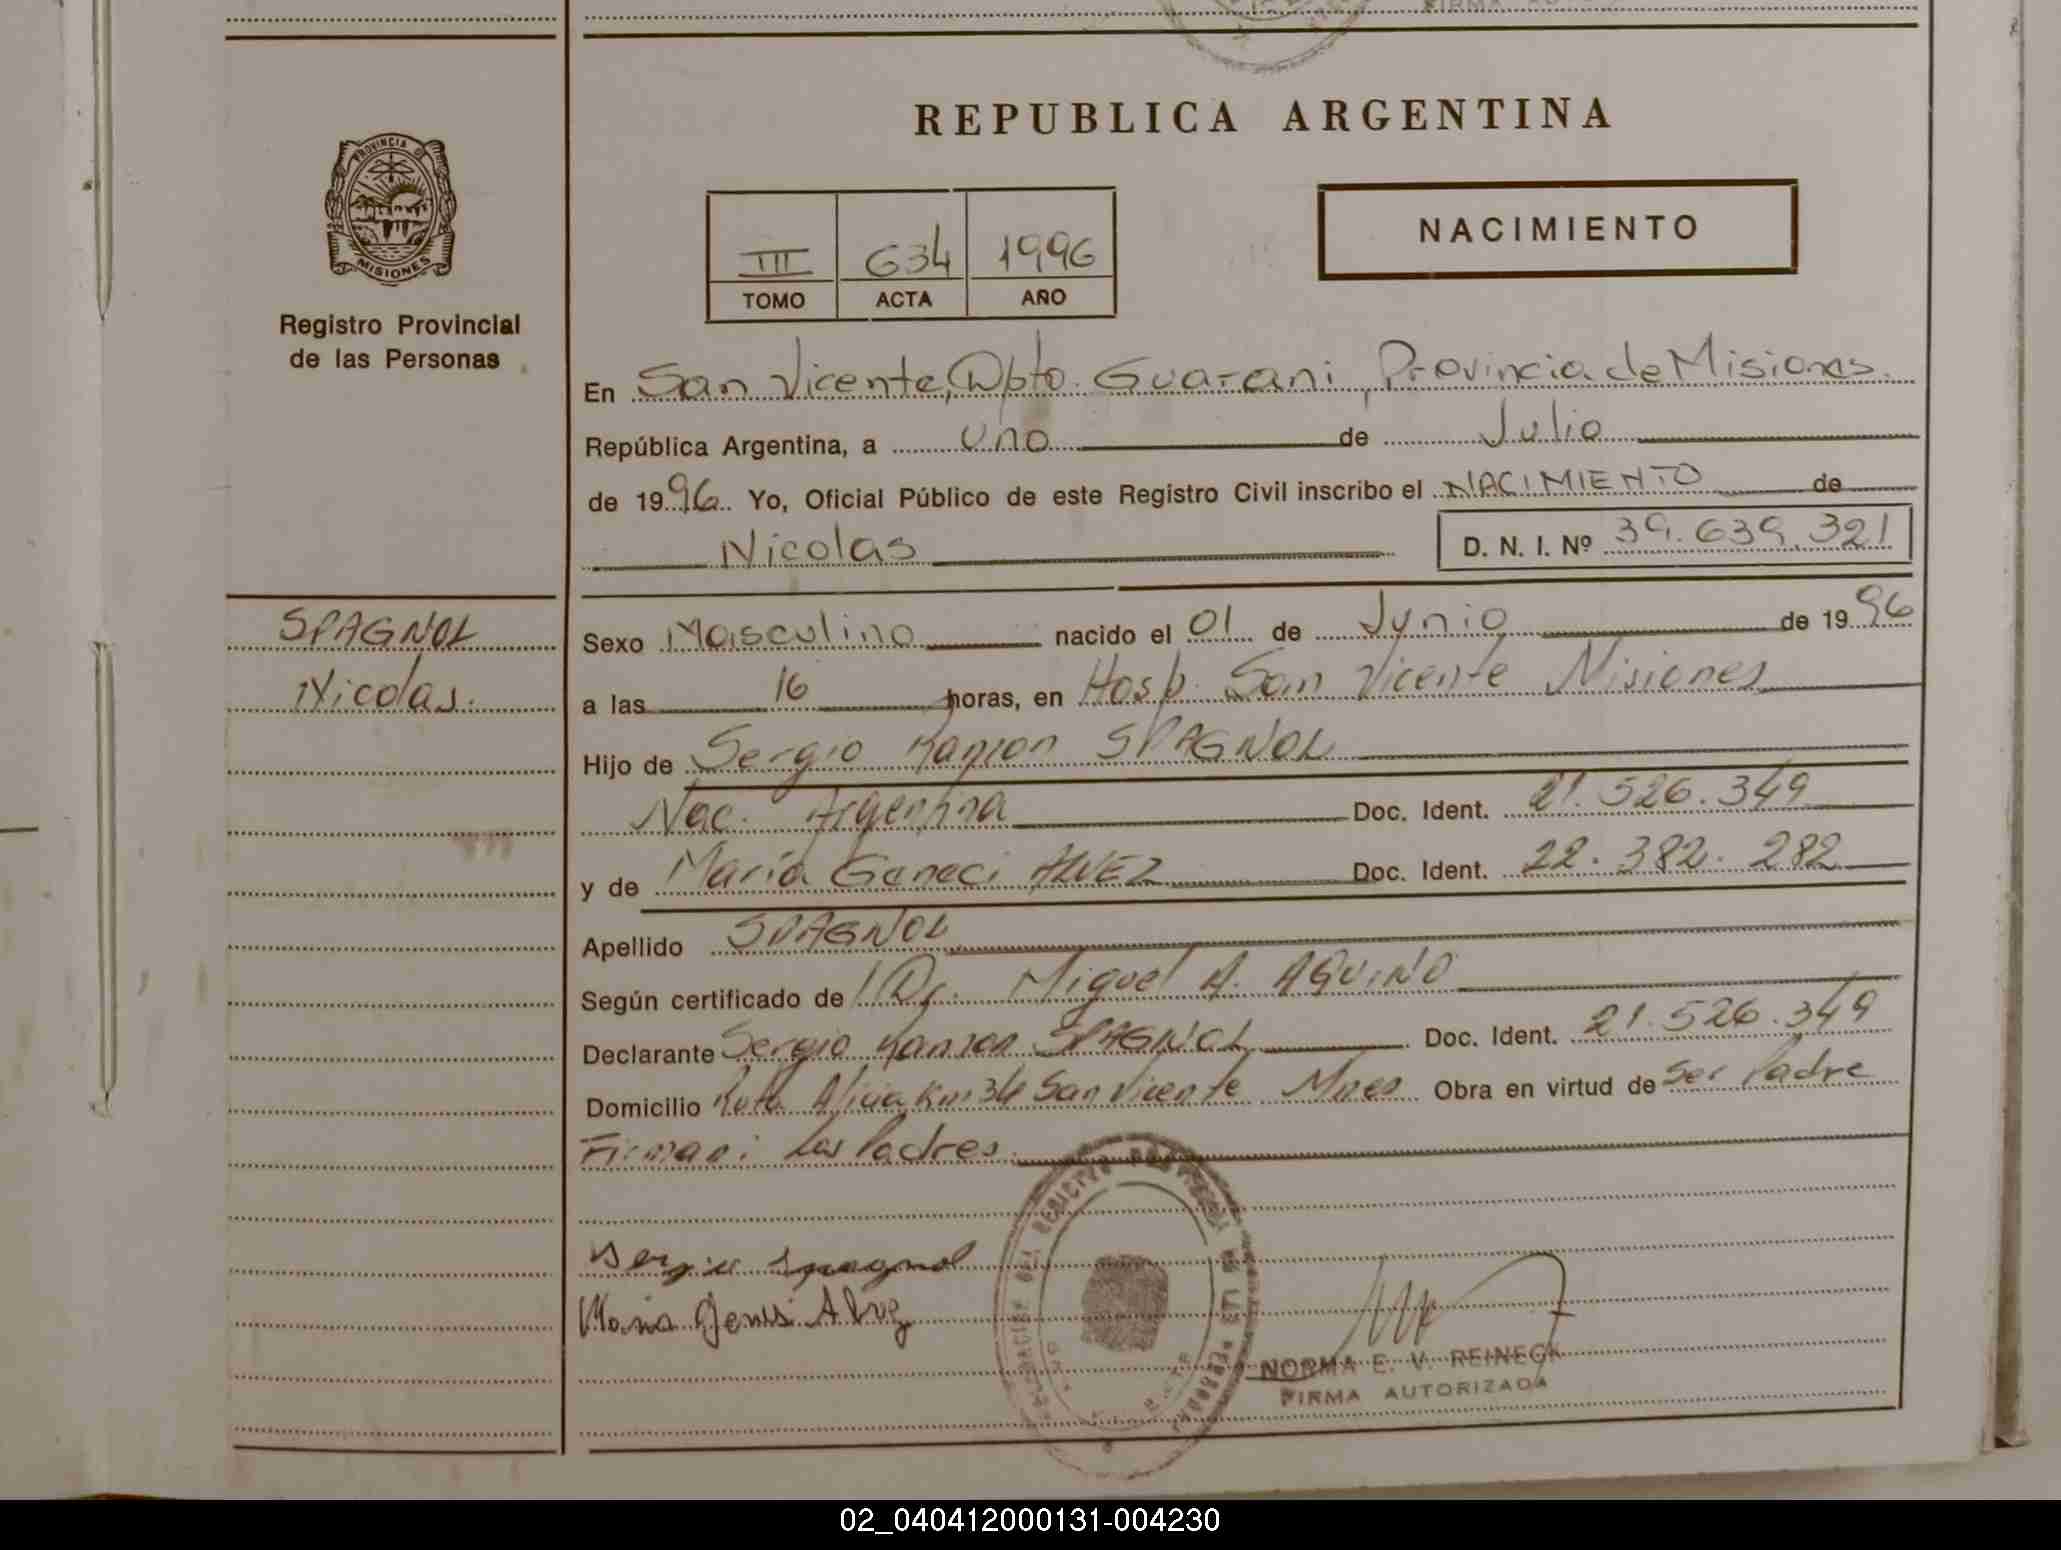 REPUBLICA ARGENTINA
PROVINCIA DE
MISIONES
Registro Provincial
de las Personas
III 634 1996
TOMO ACTA AÑO
NACIMIENTO
En San Vicente, Dpto. Guarani, Provincia de Misiones.
República Argentina, a uno de Julio
de 1996 Yo, Oficial Público de este Registro Civil inscribo el NACIMIENTO de
Nicolas D. N. I. Nº 39.639.321
SPAGNOL
Nicolas.
Sexo Masculino nacido el 01 de Junio de 1996
a las 16 horas, en Hosp. San Vicente Misiones
Hijo de Sergio Ramon SPAGNOL
Nac. Argentina Doc. Ident. 21.526.349
y de María Geneci ALVEZ Doc. Ident. 22.382.282
Apellido SPAGNOL
Según certificado de Dr. Miguel A. AQUINO
Declarante Sergio Ramon SPAGNOL Doc. Ident. 21.526.349
Domicilio Ruta Alicia Km 34 San Vicente Mnes Obra en virtud de Ser Padre
Firman: Los Padres.
Sergio Spagnol
Maria Alvez
NORMA E. V. REINECK
FIRMA AUTORIZADA
02_040412000131-004230